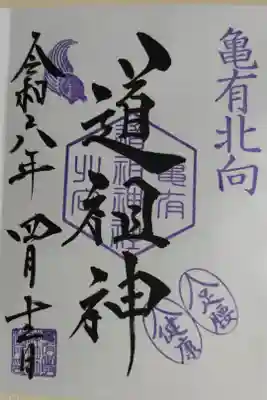 亀有北向
道祖神
令和六年 四月十二日
亀有
道祖神社
北向
足腰
健康